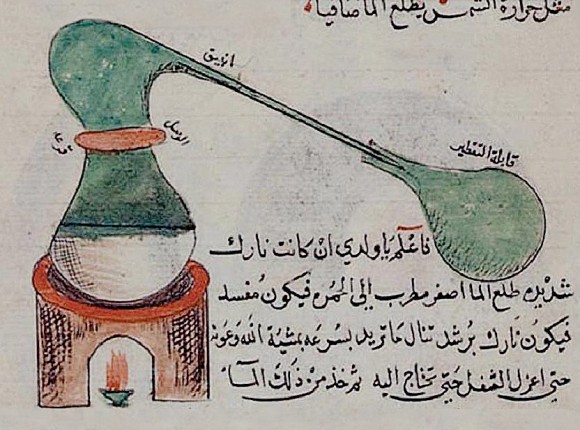 مثل حرارة الشمس يطلع الما صافيا
انبيق
الوصل
قابلة التقطير
فاعلم يا ولدي ان كانت نارك
شديده طلع الما اصفر مطرب إلى الحمره فيكون مفسد
فيكون نارك برشد تنال ما تريد بسرعه بمشيئة الله وعونه
حتى اعزل الثفل حتى تحتاج اليه ثم خذ من ذلك المآء